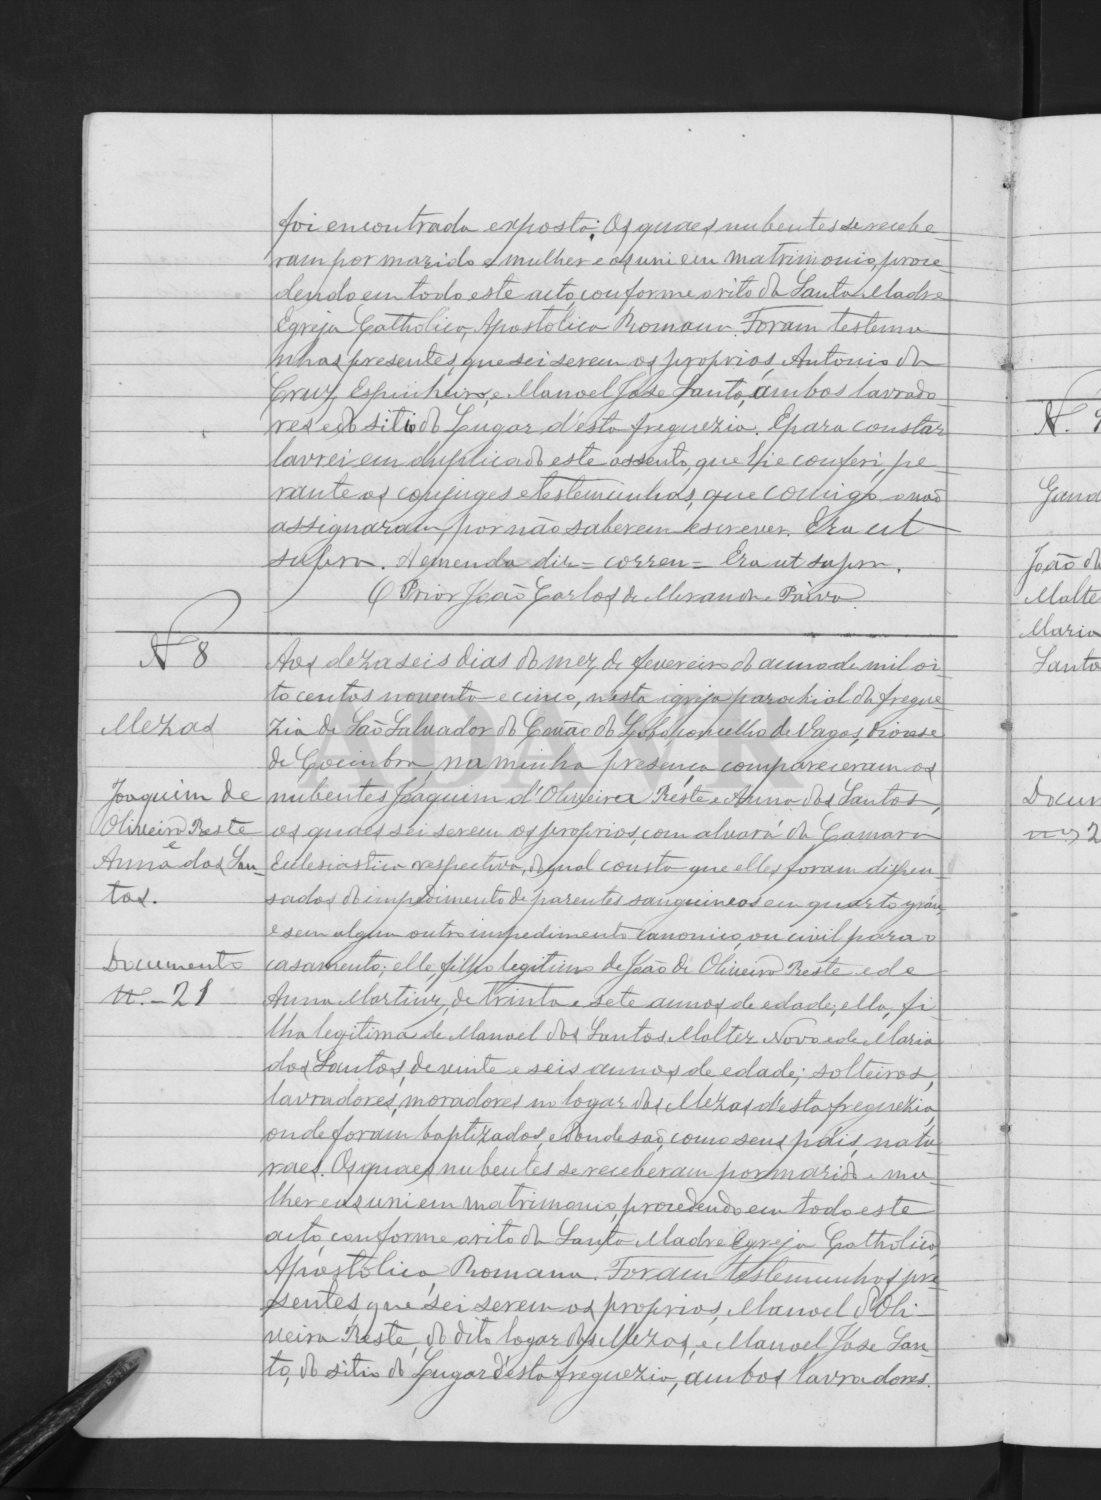 foi encontrada exposta. Os quaes nubentes se recebe-
ram por marido e mulher e os uni em matrimonio, proce-
dendo em todo este acto, conforme o rito da Santa Madre
Egreja Catholica, Apostolica Romana. Foram testemu
nhas presentes, que sei serem os proprios, Antonio da
Cruz Espinheiro, e Manoel José Santo, ámbos lavrado-
res e do sitio do Lugar d'esta freguezia. E para constar
lavrei em duplicado este assento, que li e conferi, pe-
rante os conjuges e testemunhas, que comigo o não
assignaram, por não saberem escrever. Era ut
supra. A emenda diz = correu = Era ut supra.
O Prior João Carlos de Miranda e Paiva.
Nº 8
Aos dezaseis dias do mez de fevereiro do anno de mil oi-
to centos noventa e cinco, nesta igreja parochial da fregue-
Mezas
zia de São Salvador do Covão do Lobo concelho de Vagos, diocese
de Coimbra, na minha presença compareceram os
Joaquim de
nubentes Joaquim d'Oliveira Réste e Anna dos Santos,
Oliveira Reste
os quaes sei serem os proprios, com alvará da Camara
e
Anna dos San-
Ecclesiastica respectiva, do qual consta que elles foram dispen-
tos.
sados do impedimento de parentes sanguineos em quarto gráu,
e sem algum outro impedimento canonico, ou civil para o
Documento
casamento; elle filho legitimo de João de Oliveira Reste e de
n.- 21
Anna Martins, de trinta e sete annos de edade; ella, fi-
lha legitima de Manoel dos Santos Malter Novo e de Maria
dos Santos, de vinte e seis annos de edade; solteiros,
lavradores, moradores no logar das Mezas d'esta freguezia,
onde foram baptizados, e donde são, como seus páis, natu-
raes. Os quaes nubentes se receberam por marido e mu-
lher e os uni em matrimonio, procedendo em todo este
acto, conforme o rito da Santa Madre Egreja Catholica,
Apostolica Romana. Foram testemunhas pre
sentes que sei serem os proprios, Manoel d'Oli-
veira Reste, do dito logar das Mezas, e Manoel José San-
to, do sitio do Lugar d'esta freguezia, ambos lavradores.
ADAVR
João da
Malte
Maria
Santo
Docum